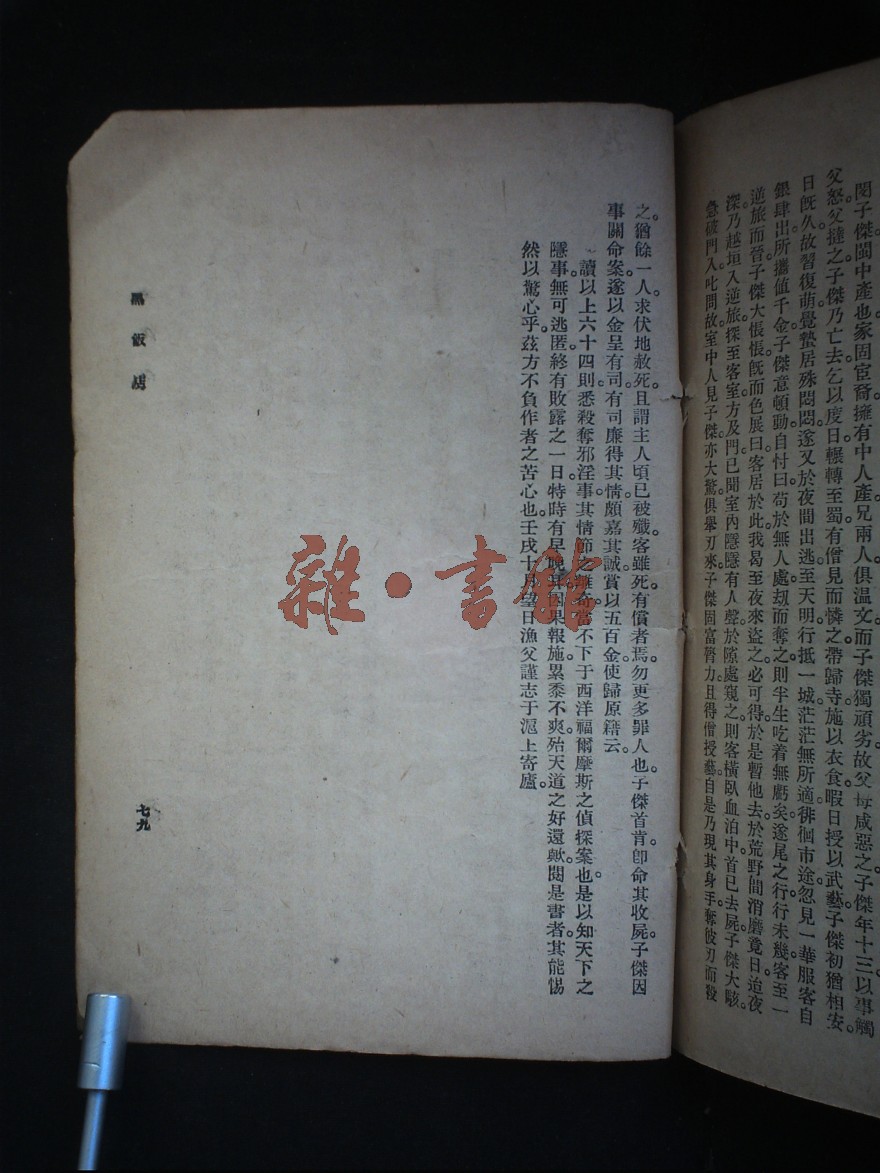 閔子傑閩中產也家固宦裔擁有中人產兄兩人俱温文而子傑獨頑劣故父母咸惡之子傑年十三以事觸
父怒父撻之子傑乃亡去乞以度日輾轉至蜀有僧見而憐之帶歸寺施以衣食暇日授以武藝子傑初猶相安。
日旣久故習復萌覺蟄居殊悶悶遂又於夜間出逃至天明行抵一城茫茫無所適徘徊市途忽見一華服客自
銀肆出所攜值千金子傑意頓動自忖曰苟於無人處刼而奪之則半生吃着無虧矣遂尾之行行未幾客至一
逆旅而晉子傑大悵悵旣而色展曰客居於此我曷至夜來盜之必可得於是暫他去於荒野間消磨竟日迨夜
深乃越垣入逆旅探至客室方及門已聞室內隱隱有人聲於隙處窺之則客橫臥血泊中首已去屍子傑大駭
急破門入叱問故室中人見子傑亦大驚俱舉刃來子傑固富膂力且得僧授藝自是乃現其身手奪彼刃而殺
之。猶餘一人求伏地赦死。且謂主人頃已被殲客雖死有償者焉。勿更多罪人也。子傑首肯。卽命其收屍。子傑因
事關命案。遂以金呈有司。有司廉得其情頗嘉其誠。賞以五百金。使歸原籍云。
讀以上六十四則。悉殺奪邪淫事。其情節之離奇當不下于西洋福爾摩斯之偵探案也。是以知天下之
隱事無可逃匿。終有敗露之一日。特時有早晚耳因果報施。累黍不爽。殆天道之好還歟。閱是書者。其能惕
然以驚心乎。茲方不負作者之苦心也。壬戌十月望日漁父謹志于滬上寄廬。
黑飯店
七九
雜·書館